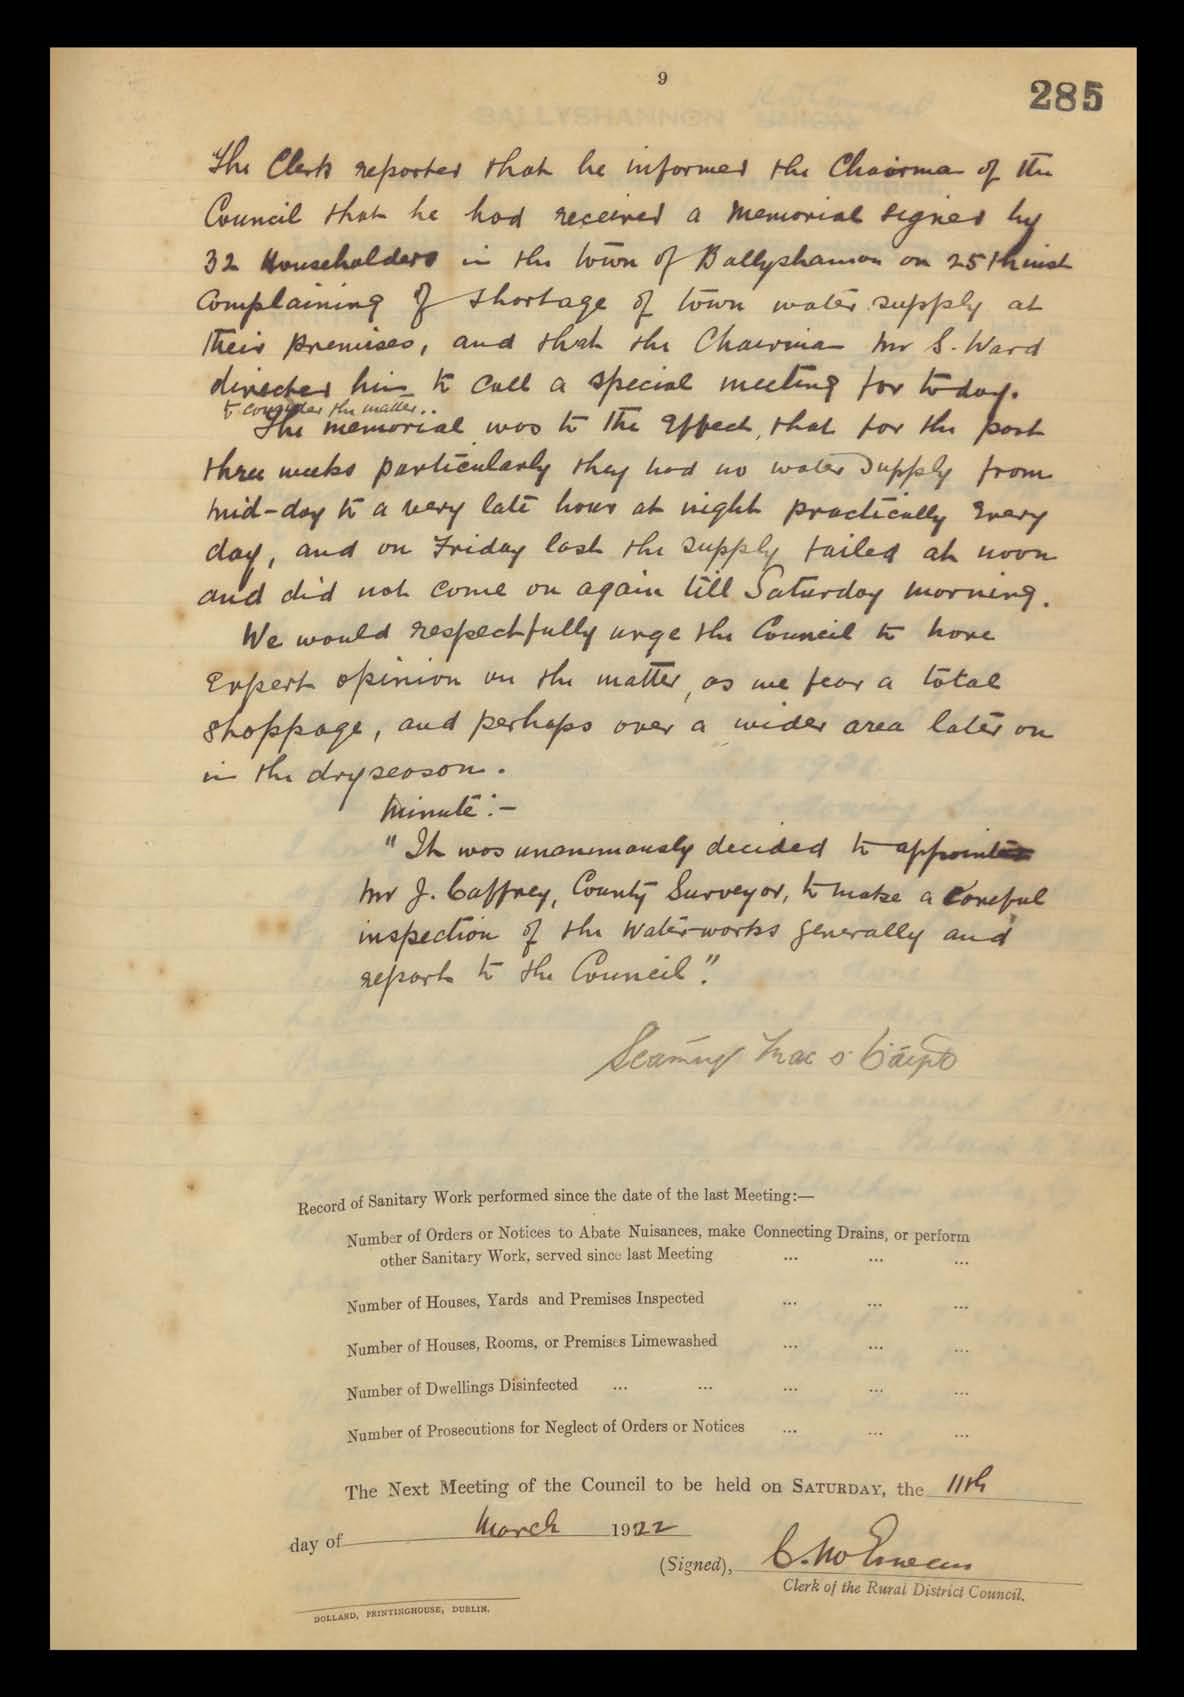 9
285
The Clerk reported that he informed the Chairman of the
Council that he had received a memorial signed by
32 Householders in the town of Ballyshannon on 25th inst
complaining of shortage of town water supply at
their premises, and that the Chairman Mr S. Ward
directed him to call a special meeting for to-day.
to consider the matter..
The memorial was to the effect, that for the past
three weeks particularly they had no water supply from
mid-day to a very late hour at night practically every
day, and on Friday last the supply failed at noon
and did not come on again till Saturday morning.
We would respectfully urge the Council to have
Expert opinion on the matter, as we fear a total
stoppage, and perhaps over a wider area later on
in the dry season.
Minute :-
"It was unanimously decided to appoint
Mr J. Caffrey, County Surveyor, to make a careful
inspection of the Waterworks generally and
report to the Council".
Mac
Record of Sanitary Work performed since the date of the last Meeting:—
Number of Orders or Notices to Abate Nuisances, make Connecting Drains, or perform
other Sanitary Work, served since last Meeting ... ... ...
Number of Houses, Yards and Premises Inspected ... ... ...
Number of Houses, Rooms, or Premises Limewashed ... ... ...
Number of Dwellings Disinfected ... ... ... ... ...
Number of Prosecutions for Neglect of Orders or Notices ... ... ...
The Next Meeting of the Council to be held on SATURDAY, the 11th
day of March 1922
(Signed), C.
Clerk of the Rural District Council.
DOLLARD, PRINTINGHOUSE, DUBLIN.